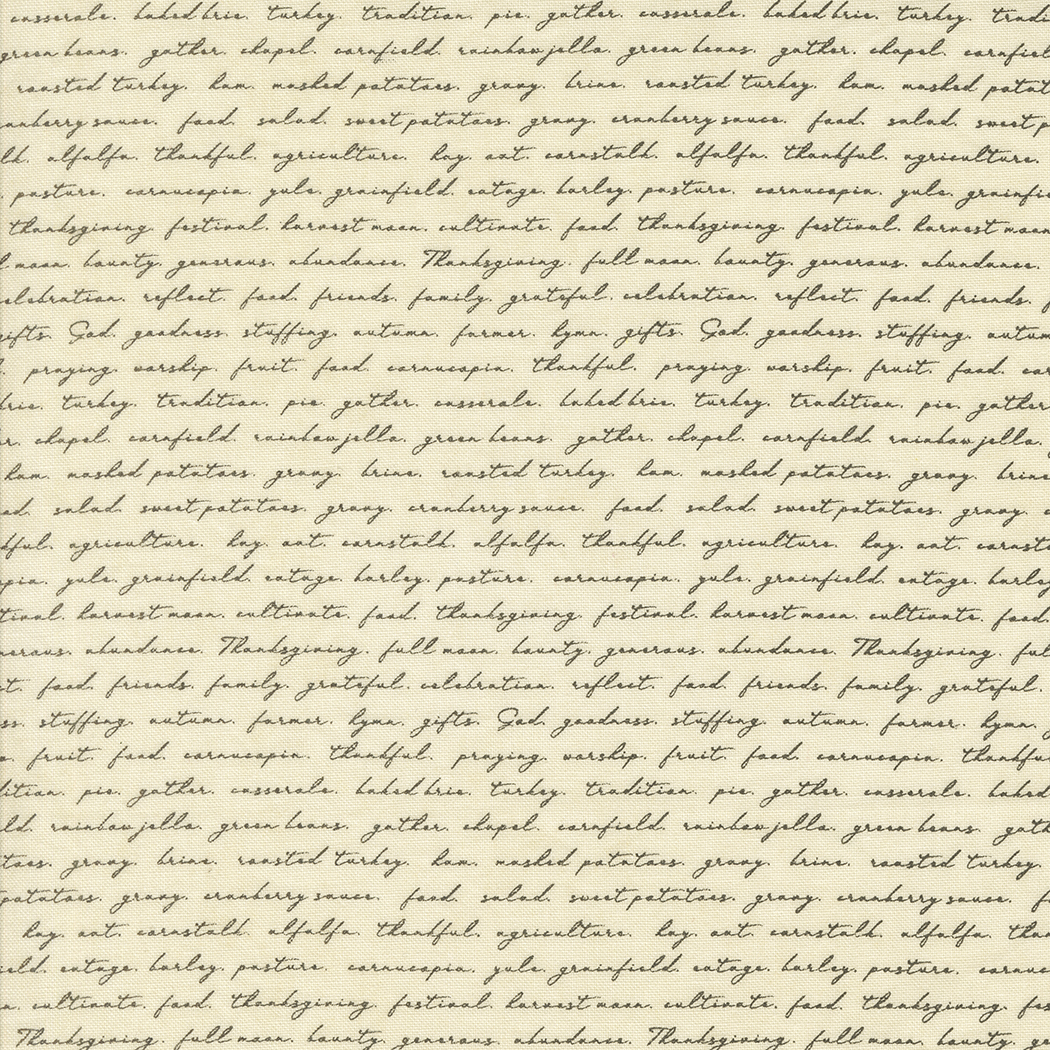 casserole. baked brie. turkey. tradition. pie. gather. casserole. baked brie. turkey. tradi
green beans. gather. chapel. cornfield. rainbow jello. green beans. gather. chapel. cornfiel
roasted turkey. ham. mashed potatoes. gravy. brine. roasted turkey. ham. mashed potat
anberry sauce. food. salad. sweet potatoes. gravy. cranberry sauce. food. salad. sweet p
lk. alfalfa. thankful. agriculture. hay. oat. cornstalk. alfalfa. thankful. agriculture.
. pasture. cornucopia. yule. grainfield. eatage. barley. pasture. cornucopia. yule. grainfie
thanksgiving. festival. harvest moon. cultivate. food. thanksgiving. festival. harvest moon
l moon. bounty. generous. abundance. Thanksgiving. full moon. bounty. generous. abundance.
elebration. reflect. food. friends. family. grateful. celebration. reflect. food. friends. f
gifts. God. goodness. stuffing. autumn. farmer. hymn. gifts. God. goodness. stuffing. autum
. praying. worship. fruit. food. cornucopia. thankful. praying. worship. fruit. food. cor
brie. turkey. tradition. pie. gather. casserole. baked brie. turkey. tradition. pie. gather
r. chapel. cornfield. rainbow jello. green beans. gather. chapel. cornfield. rainbow jello.
ham. mashed potatoes. gravy. brine. roasted turkey. ham. mashed potatoes. gravy. brine
od. salad. sweet potatoes. gravy. cranberry sauce. food. salad. sweet potatoes. gravy. c
kful. agriculture. hay. oat. cornstalk. alfalfa. thankful. agriculture. hay. oat. cornsta
opia. yule. grainfield. eatage. barley. pasture. cornucopia. yule. grainfield. eatage. barley
tival. harvest moon. cultivate. food. thanksgiving. festival. harvest moon. cultivate. food.
nerous. abundance. Thanksgiving. full moon. bounty. generous. abundance. Thanksgiving. ful
ct. food. friends. family. grateful. celebration. reflect. food. friends. family. grateful.
ss. stuffing. autumn. farmer. hymn. gifts. God. goodness. stuffing. autumn. farmer. hymn. g
p. fruit. food. cornucopia. thankful. praying. worship. fruit. food. cornucopia. thankfu
dition. pie. gather. casserole. baked brie. turkey. tradition. pie. gather. casserole. baked
ld. rainbow jello. green beans. gather. chapel. cornfield. rainbow jello. green beans. gath
toes. gravy. brine. roasted turkey. ham. mashed potatoes. gravy. brine. roasted turkey.
potatoes. gravy. cranberry sauce. food. salad. sweet potatoes. gravy. cranberry sauce. f
hay. oat. cornstalk. alfalfa. thankful. agriculture. hay. oat. cornstalk. alfalfa. than
ield. eatage. barley. pasture. cornucopia. yule. grainfield. eatage. barley. pasture. cornuc
n. cultivate. food. thanksgiving. festival. harvest moon. cultivate. food. thanksgiving. fes
Thanksgiving. full moon. bounty. generous. abundance. Thanksgiving. full moon. bounty. ge